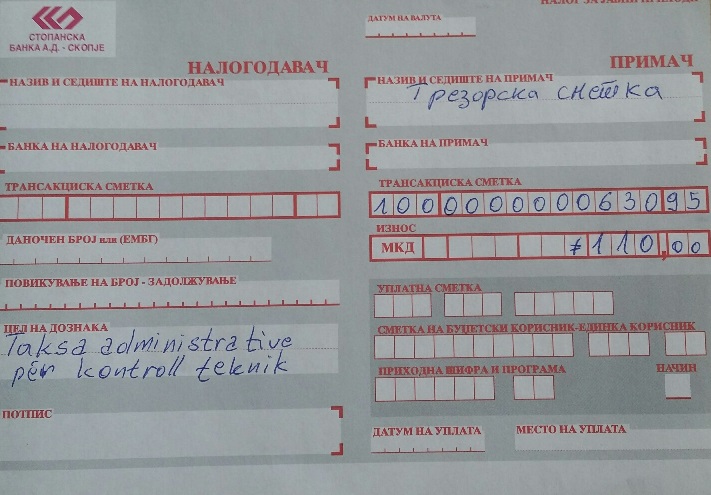 НАЛОГ ЗА ЈАВНИ ПРИХОДИ
СТОПАНСКА
БАНКА А.Д. - СКОПЈЕ
ДАТУМ НА ВАЛУТА
НАЛОГОДАВАЧ
ПРИМАЧ
НАЗИВ И СЕДИШТЕ НА НАЛОГОДАВАЧ
НАЗИВ И СЕДИШТЕ НА ПРИМАЧ
Трезорска сметка
БАНКА НА НАЛОГОДАВАЧ
БАНКА НА ПРИМАЧ
ТРАНСАКЦИСКА СМЕТКА
ТРАНСАКЦИСКА СМЕТКА
100000000063095
ДАНОЧЕН БРОЈ или (ЕМБГ)
ИЗНОС
МКД ≠110,00
ПОВИКУВАЊЕ НА БРОЈ - ЗАДОЛЖУВАЊЕ
УПЛАТНА СМЕТКА
ЦЕЛ НА ДОЗНАКА
Taksa administrative
për kontroll teknik
СМЕТКА НА БУЏЕТСКИ КОРИСНИК-ЕДИНКА КОРИСНИК
ПРИХОДНА ШИФРА И ПРОГРАМА
НАЧИН
ПОТПИС
ДАТУМ НА УПЛАТА
МЕСТО НА УПЛАТА